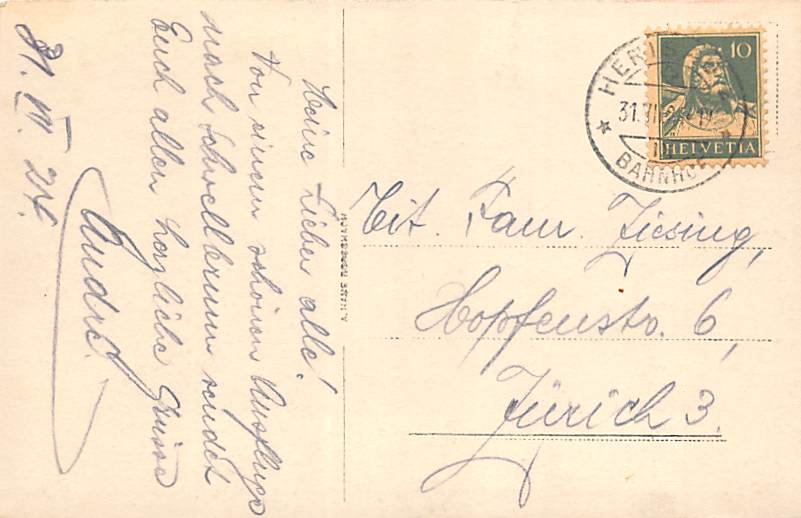 Meine Lieben alle!
Von einem schönen Ausfluge
nach Schwellbrunn sendet
Euch allen herzliche Grüsse
André.
31. VII. 24.
Tit. Fam. Ziesing,
Hopfenstr. 6,
Zürich 3.
10
HELVETIA
HERI
31.VII
BAHNHOF